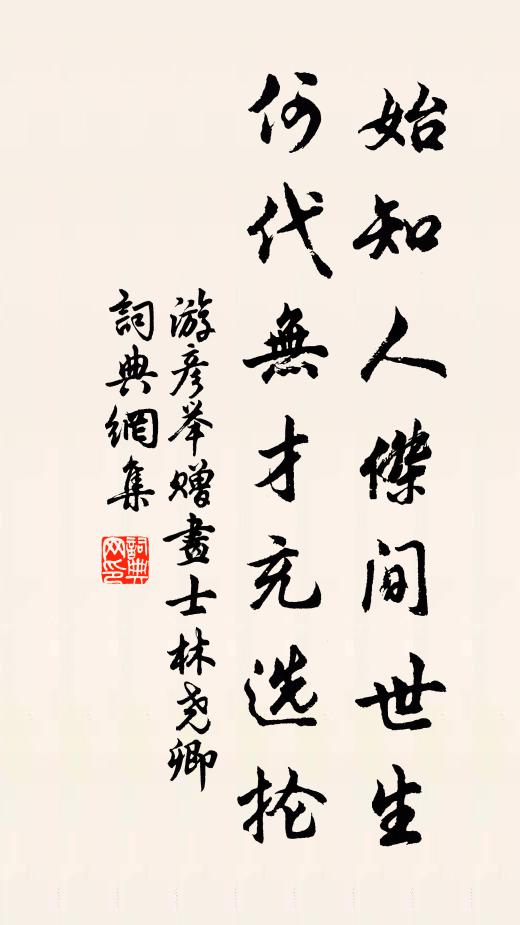 始知人傑間世生
何代無才充选抡
游彦举赠畫士林尧卿
詞典網集
詞典网印